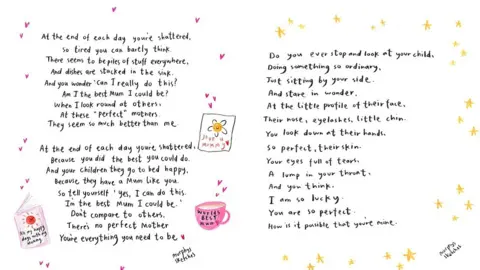 At the end of each day you're shattered,
So tired you can barely think.
There seems to be piles of stuff everywhere,
And dishes are stacked in the sink.
And you wonder 'can I really do this?
Am I the best Mum I could be?
When I look round at others,
At these "perfect" mothers.
They seem so much better than me.
At the end of each day you're shattered,
Because you did the best you could do.
And your children they go to bed happy,
Because they have a Mum like you.
So tell yourself 'Yes, I can do this.
I'm the best Mum I could be.'
Don't compare to others,
There's no perfect Mother
You're everything you need to be.
WORLDS
BEST
MUM
murphys
sketches
Do you ever stop and look at your child,
Doing something so ordinary,
Just sitting by your side.
And stare in wonder.
At the little profile of their face,
Their nose, eyelashes, little chin.
You look down at their hands.
So perfect, their skin.
Your eyes full of tears.
A lump in your throat.
And you think.
I am so lucky.
You are so perfect.
How is it possible that you're mine.
murphys
sketches